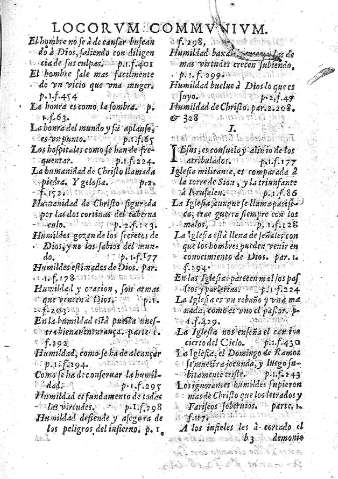 LOCORVM COMMVNIVM.
El hombre no se à de cansar buscan
do à Dios, saliendo con diligen
cia de sus culpas. p.1.f.401
El hombre sale mas facilmente
de un vicio que una muger.
p.1.f.454
La honra es como la sombra. p.
1.f.63.
La honra del mundo y su aplauso,
es un punto. p.1.f.65
Los hospitales como se han de fre-
quentar. p.1.f.224.
La humanidad de Christo llamada
piedra. Y yglesia. p.2.
f.152.
Humanidad de Christo figurada
por las dos cortinas del taberna
culo. p.2.f.113.
Humildes gozan de los secretos de
Dios, y no los sabios del mun-
do. p.1.f.177
Humildes estimados de Dios. par.
1.f.178
Humildad y oracion, son armas
que vencen à Dios. p.1.
f.263.
En la humildad està puesta nues-
tra bienaventurança. parte 1.
f.292
Humildad, como se ha de alcançar
p.1.f.294.
Como se ha de conservar la humil-
dad. p.1.f.295
Humildad es fundamento de todas
las virtudes. p.1.f.298
Humildad defiende y assegura de
los peligros del infierno. p.1.
f.298,
Humildad baxa las de
mas virtudes crecen subiendo,
p.1.f.299.
Humildad buelve à Dios lo que es
suyo. p.2.f.47
Humildad de Christo. par.2.208,
& 328
I.
IESUS, es consuelo y alivio de los
atribulados. p.1.f.177
Iglesia militante, es comparada à
la torre de Sion, y la triunfante
à Ierusalen. p.1.f.86
La Iglesia aunque se llama pacifi-
ca, trae guerra siempre con los
malos. p.1.f.128
La Iglesia està llena de señales, con
que los hombres pueden venir en
conocimiento de Dios. par.1.
f.294.
En las Iglesias parecen mal los pas
seos y parlerias. p.1.f.224
La Iglesia es un rebaño y una ma
nada, como es uno el pastor. p.
4.f.429.
La Iglesia nos enseña el camino
cierto del Cielo. p.1.f.430
La Iglesia, el Domingo de Ramos
se muestra jocunda, y luego su-
bitamente triste. p.1.f.243
Los ignorantes humildes supieron
mas de Christo que los letrados y
Fariseos sobervios. parte.1.
f.177.
A los infieles les à cortado el
b3 demonio